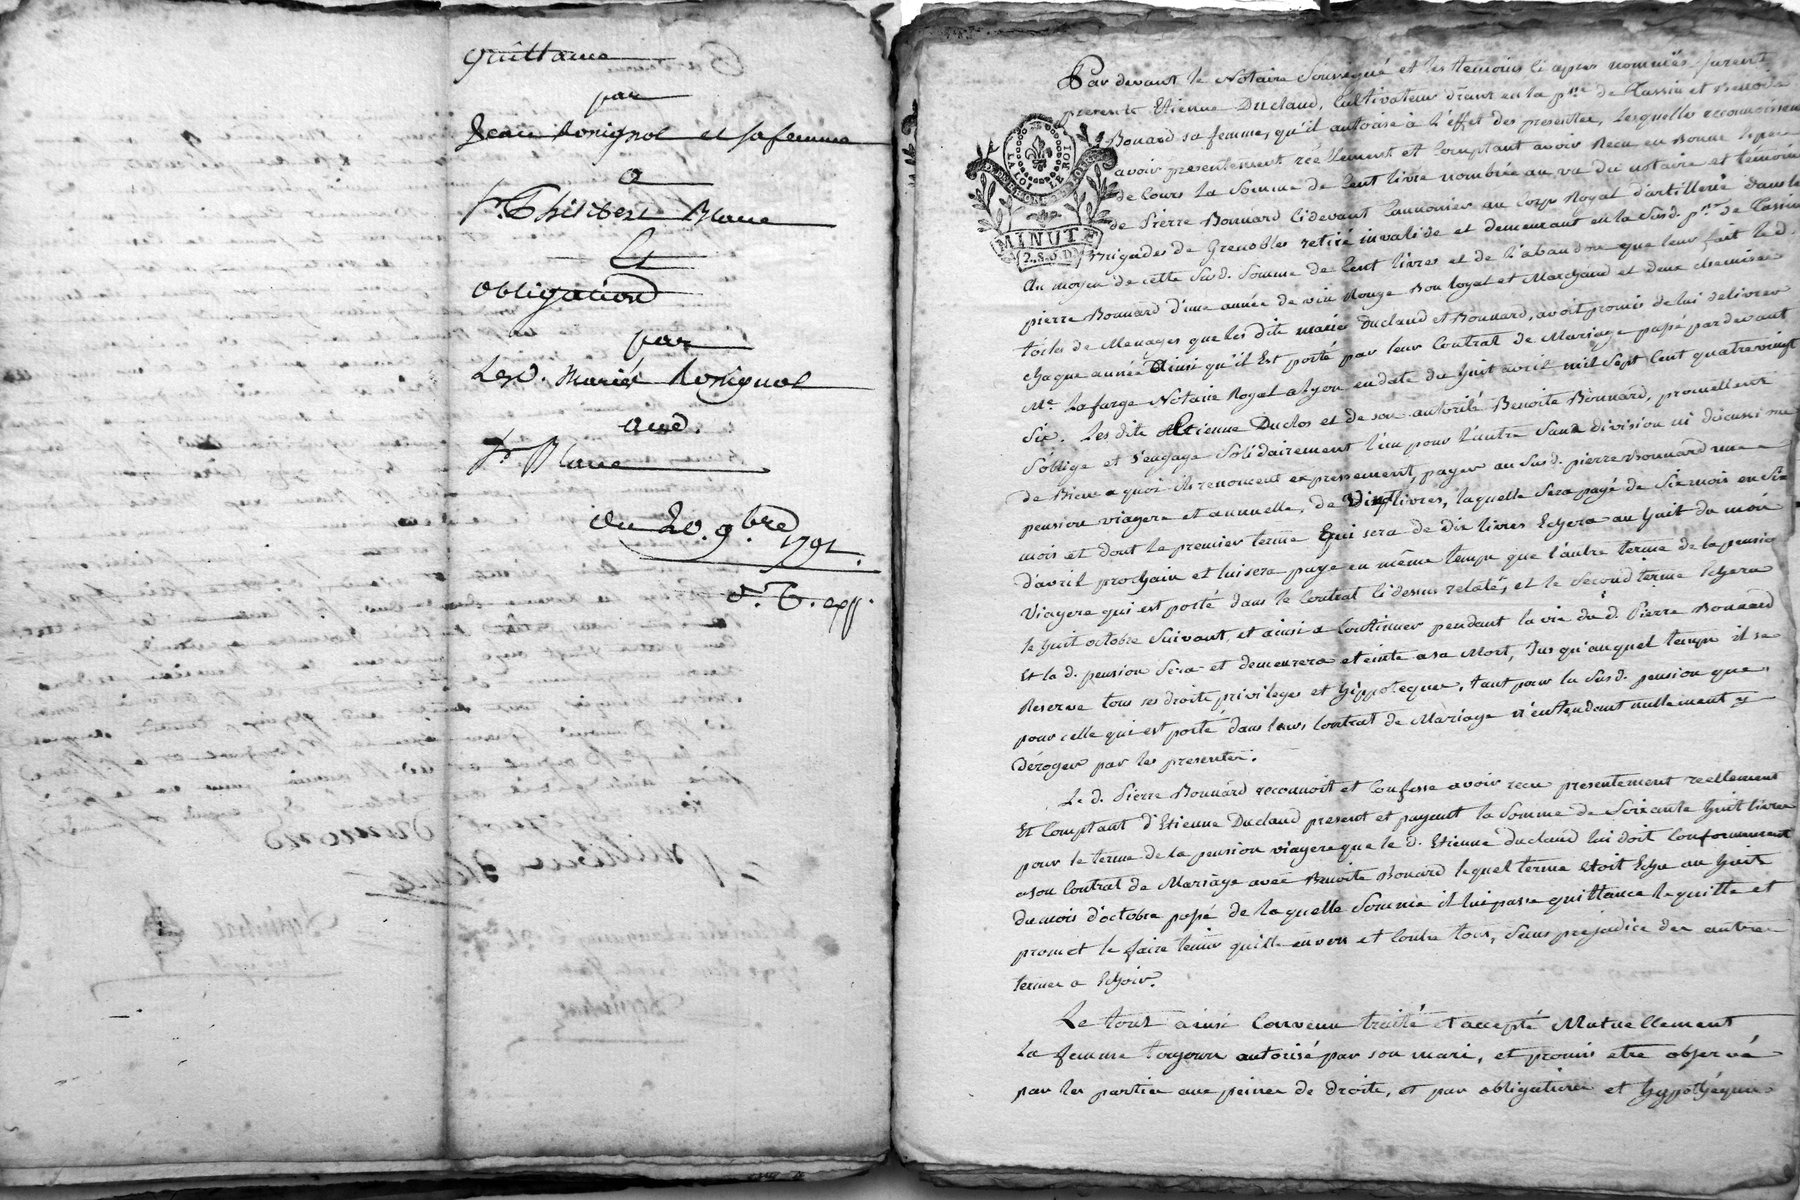 Quittance
par
Jean Rosignol et sa femme
a
Sr. Philibert Blanc
Et
obligation
par
Lesd. Mariés Rosignol
aud.
Sr. Blanc
du 20. 9bre 1791.
Par devant le Notaire Soussigné et les temoins ci apres nommés furent
presents Etienne Duclaud, Cultivateur dt en la psse de Tassin et Benoite
Bonard sa femme, qu'il autorise à l'effet des presentes, lesquelles reconnoissent
avoir presentement réellement et Comptant avoir Recu en Bonne Espece
de Cours la Somme de Cent livre nombrée au vu du notaire et témoins
de Pierre Bonnard Cidevant Cannonier au Corps Royal d'artillerie dans les
Brigades de Grenobles retiré invalide et demeurant en la Susd. psse de Tassin
Au moyen de cette Susd. Somme de Cent livres et de l'abandon que leur fait le d.
pierre Bonnard d'une année de vin Rouge Bon loyal et Marchand et deux chemises
toiles de Menages que les dits mariés Duclaud et Bonnard, avoit promis de lui delivrer
chaque année Ainsi qu'il Est porté par leur Contrat de Mariage passé pardevant
Me. Lafarge Notaire Royal a Lyon en date du huit avril mil Sept Cent quatre vingt
Six. Les dits Etienne Duclos et de son autorité Benoite Bonnard, promettent
S'oblige et s'engage Solidairement l'un pour l'autre Sans division ni discussi me
de Biens a quoi ils renoncent expressement, payer au Susd. pierre Bonnard une
pension viagere et annuelle, de vingt livres, laquelle Sera payé de Six mois en Six
mois et dont le premier terme Qui sera de dix livres Echera au huit du mois
d'avril prochain et lui sera payé en même temps que l'autre terme de la pension
Viagere qui est porté dans le Contrat Ci dessus relaté, et le Second terme Echera
le huit octobre Suivant, et ainsi a Continuer pendant la vie du d. Pierre Bonnard
Et la d. pension Sera et demeurera eteinte a sa Mort, Jusqu'auquel temps il se
Reserve tous ses droits privileges et hippoteques, tant pour la Susd. pension que
pour celle qui est porté dans leurs Contrat de Mariage n'entendant nullement y
déroger par les presentes.
Le d. Pierre Bonnard reconnoit et Confesse avoir recu presentement reellement
Et Comptant d'Etienne Duclaud present et payent la Somme de Soixante huit livres
pour le terme de la pension viagere que le d. Etienne duclaud lui doit Conformement
a son Contrat de Mariage avec Benoite Bonard lequel terme Etoit Echu au huit
du mois d'octobre passé de laquelle Somme il lui passe quittance le quitte et
promet le faire tenir quitte envers et Contre tous, Sans prejudice des autres
termes a Echoir.
Le tout ainsi Convenu traité et accepté Mutuellement
La femme toujours autorisé par son mari, et promis etre observé
par les parties aux peines de droits, et par obligations et hypothéques
LA LOI LE ROI
MINUTE
2. S. 6 D.